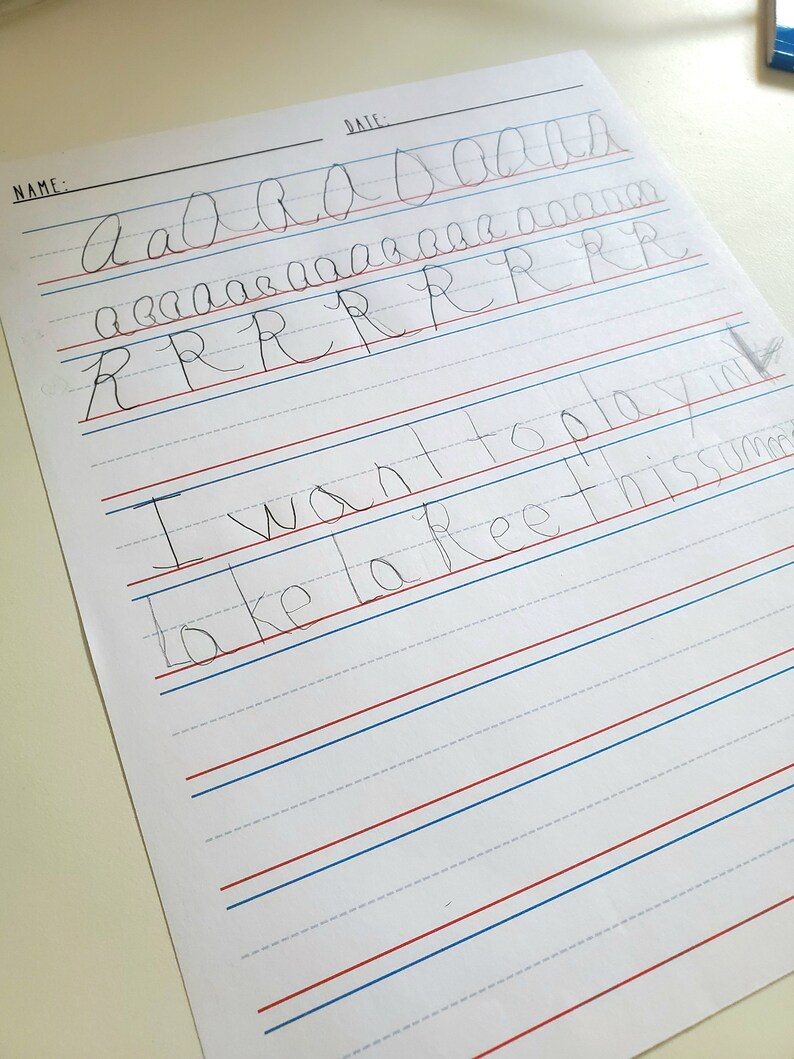 NAME: DATE:
A a A A A A A A A A
a a a a a a a a a a a a a a a a a a a
R R R R R R R R
I want to play in
Lake LaRee this summ